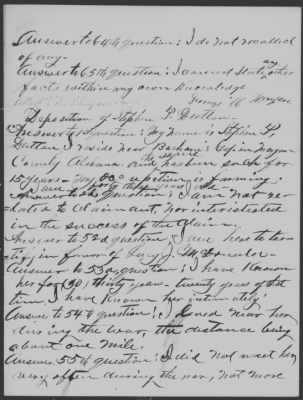 Answer to 64th question: I do not recollect
of any.
Answer to 65th question: I cannot state any other
facts within my own knowledge
Deposition of Stephen P.
Answer to 1 question: My name is Stephen P.
I reside near Gap in
County Alabama and the same has been such for
15 years. My occupation is farming
I am years old
Answer to question: I am not re-
lated to claimant, nor interested
in the success of the claim.
Answer to 52d question. I am here to tes-
tify in favor of
Answer to 53d question: I have known
her for (30) thirty years - twenty years of that
time, I have known her intimately.
Answer to 54th question: I lived near her
during the war, the distance being
about one mile.
Answer 55th question: I did not meet her
very often during the war, not more